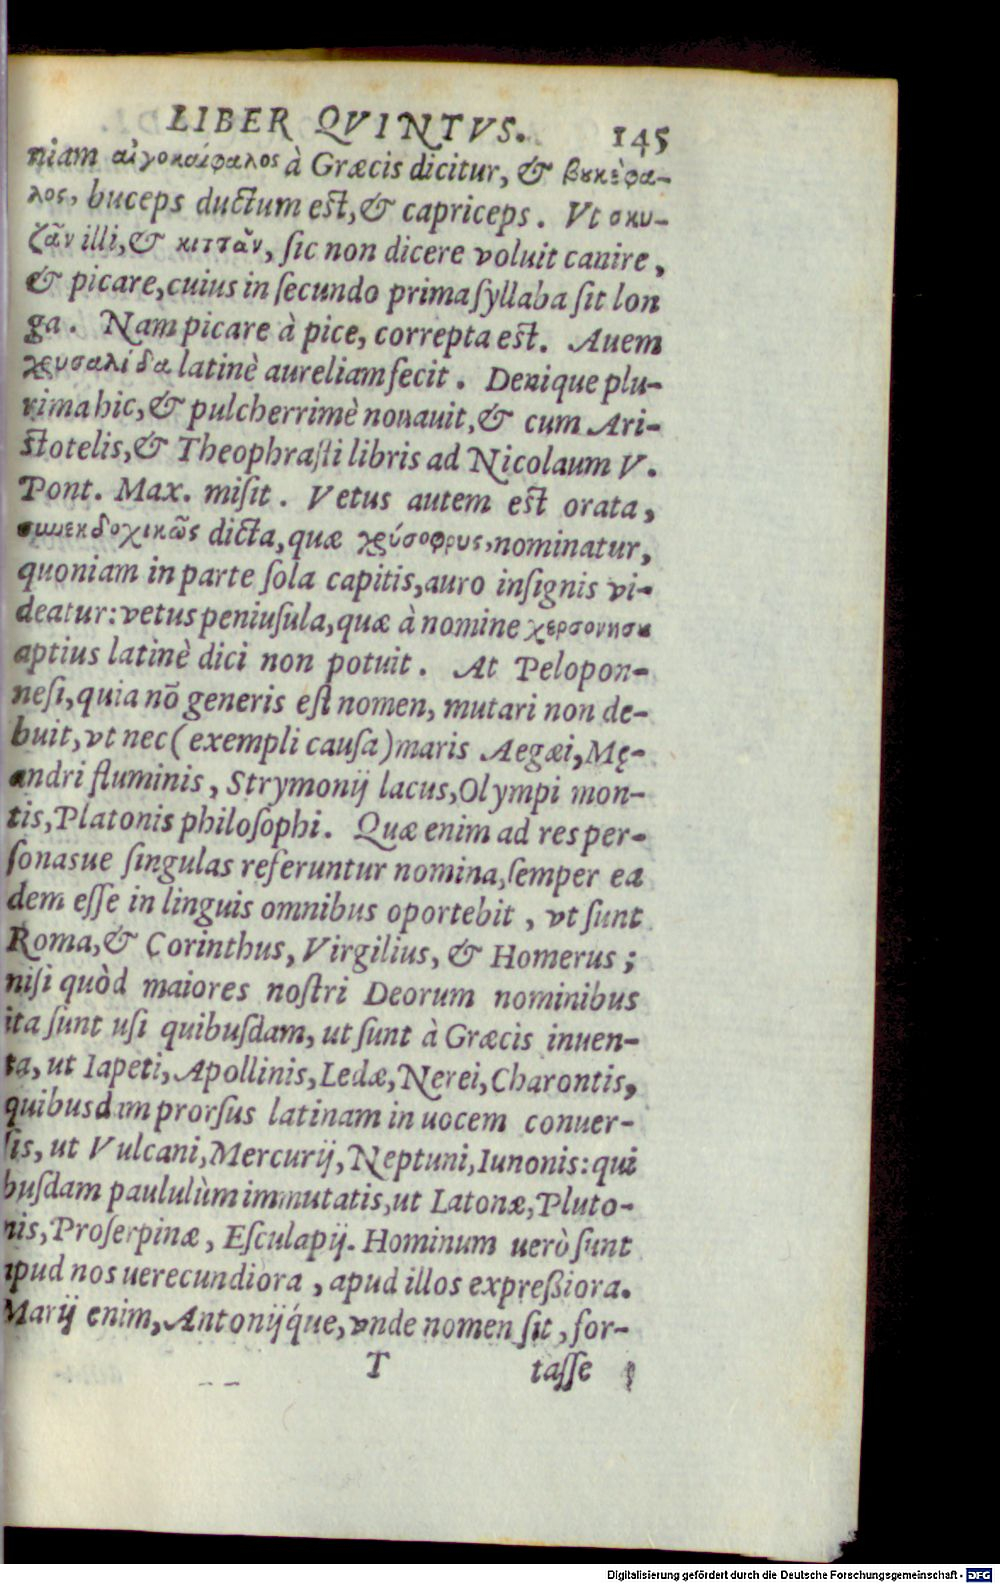 LIBER QVINTVS. 145
niam αἰγοκαίφαλος à Græcis dicitur, & βυκέφα-
λος, buceps ductum est, & capriceps. Vt σκυ-
ζᾶν illi, & κιττᾶν, ſic non dicere voluit canire,
& picare, cuius in ſecundo prima ſyllaba ſit lon
ga. Nam picare à pice, correpta est. Auem
χρυσαλίδα latinè aureliam fecit. Denique plu-
rima hic, & pulcherrimè nouauit, & cum Ari-
ſtotelis, & Theophraſti libris ad Nicolaum V.
Pont. Max. miſit. Vetus autem est orata,
συνεκδοχικῶς dicta, quæ χρύσοφρυς, nominatur,
quoniam in parte ſola capitis, auro inſignis vi-
deatur: vetus peniuſula, quæ à nomine χερσονησυ
aptius latinè dici non potuit. At Pelopon-
neſi, quia nō generis eſt nomen, mutari non de-
buit, vt nec (exempli cauſa) maris Aegæi, Mę-
andri fluminis, Strymonij lacus, Olympi mon-
tis, Platonis philoſophi. Quæ enim ad res per-
ſonasue ſingulas referuntur nomina, ſemper ea
dem eſſe in linguis omnibus oportebit, vt ſunt
Roma, & Corinthus, Virgilius, & Homerus;
niſi quòd maiores noſtri Deorum nominibus
ita ſunt uſi quibuſdam, ut ſunt à Græcis inuen-
ta, ut Iapeti, Apollinis, Ledæ, Nerei, Charontis,
quibusdam prorſus latinam in uocem conuer-
ſis, ut Vulcani, Mercurij, Neptuni, Iunonis: qui
buſdam paululùm immutatis, ut Latonæ, Pluto-
nis, Proſerpinæ, Eſculapij. Hominum uerò ſunt
apud nos uerecundiora, apud illos expreßiora.
Marij enim, Antonijq́ue, vnde nomen ſit, for-
T taſſe
Digitalisierung gefördert durch die Deutsche Forschungsgemeinschaft - DFG